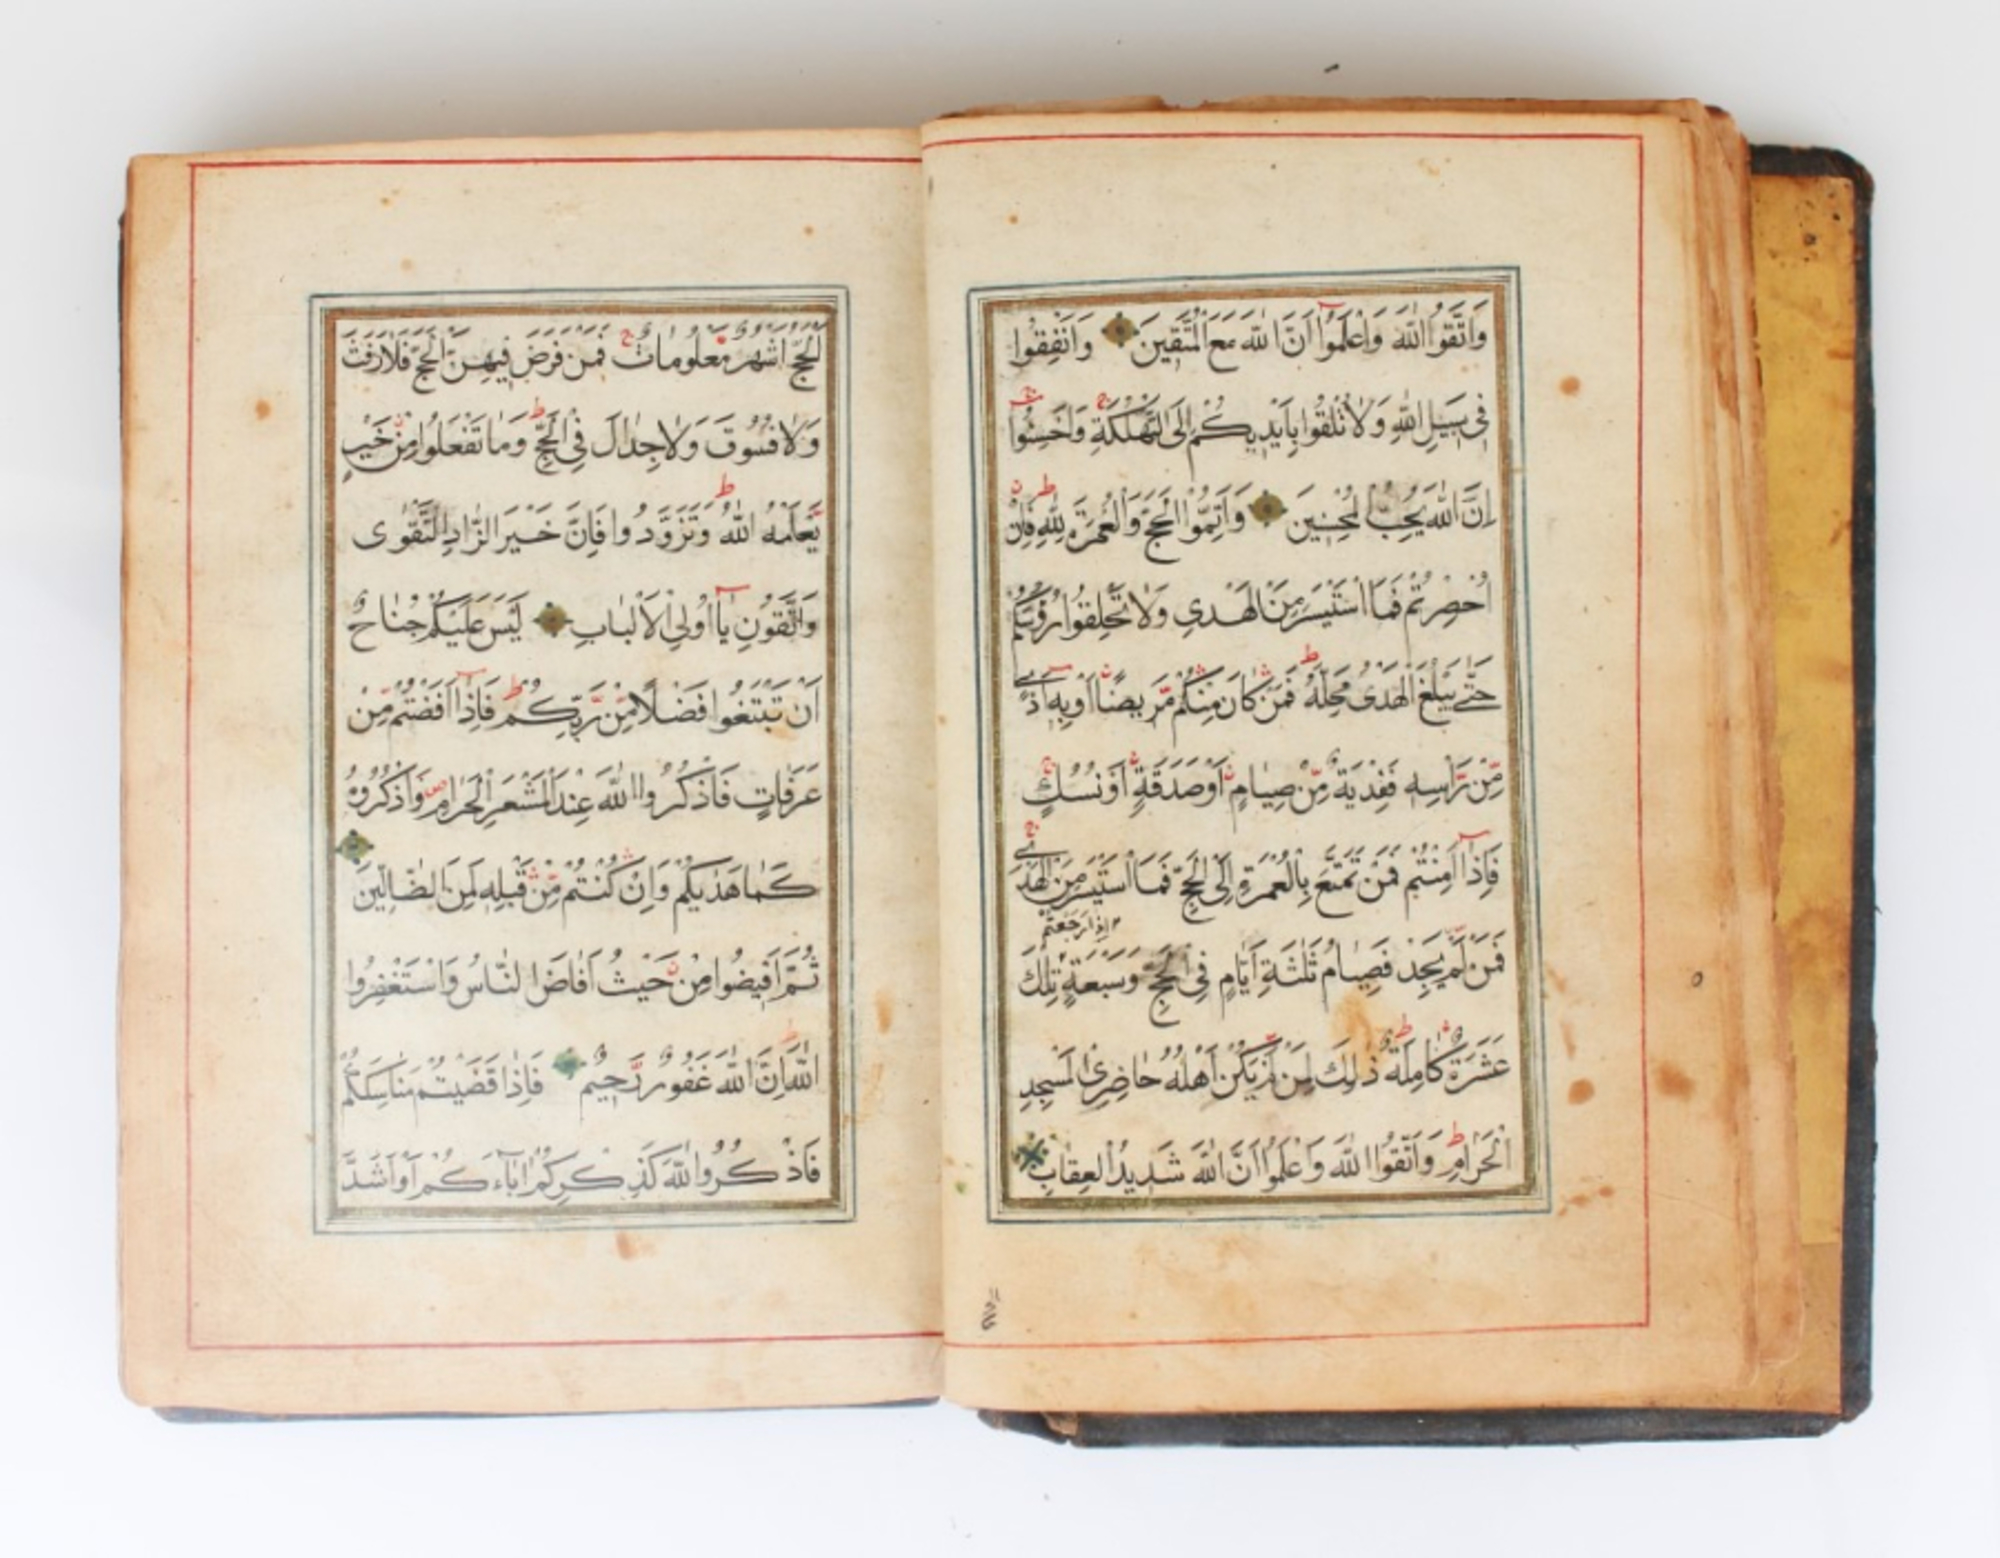 وَاتَّقُوا اللّٰهَ وَاعْلَمُوٓا اَنَّ اللّٰهَ مَعَ الْمُتَّقِينَ وَاَنْفِقُوا
فِى سَبِيلِ اللّٰهِ وَلَا تُلْقُوا بِاَيْدِيكُمْ اِلَى التَّهْلُكَةِ وَاَحْسِنُوا
اِنَّ اللّٰهَ يُحِبُّ الْمُحْسِنِينَ وَاَتِمُّوا الْحَجَّ وَالْعُمْرَةَ لِلّٰهِ فَاِنْ
اُحْصِرْتُمْ فَمَا اسْتَيْسَرَ مِنَ الْهَدْىِ وَلَا تَحْلِقُوا رُؤُسَكُمْ
حَتّٰى يَبْلُغَ الْهَدْىُ مَحِلَّهُ فَمَنْ كَانَ مِنْكُمْ مَّرِيضًا اَوْ بِهٖٓ اَذًى
مِّنْ رَّاْسِهٖ فَفِدْيَةٌ مِّنْ صِيَامٍ اَوْ صَدَقَةٍ اَوْ نُسُكٍ
فَاِذَآ اَمِنْتُمْ فَمَنْ تَمَتَّعَ بِالْعُمْرَةِ اِلَى الْحَجِّ فَمَا اسْتَيْسَرَ مِنَ الْهَدْىِ
اِذَا رَجَعْتُمْ
فَمَنْ لَّمْ يَجِدْ فَصِيَامُ ثَلٰثَةِ اَيَّامٍ فِى الْحَجِّ وَسَبْعَةٍ تِلْكَ
عَشَرَةٌ كَامِلَةٌ ذٰلِكَ لِمَنْ لَّمْ يَكُنْ اَهْلُهُ حَاضِرِى الْمَسْجِدِ
الْحَرَامِ وَاتَّقُوا اللّٰهَ وَاعْلَمُوٓا اَنَّ اللّٰهَ شَدِيدُ الْعِقَابِ
اَلْحَجُّ اَشْهُرٌ مَّعْلُومَاتٌ فَمَنْ فَرَضَ فِيهِنَّ الْحَجَّ فَلَا رَفَثَ
وَلَا فُسُوقَ وَلَا جِدَالَ فِى الْحَجِّ وَمَا تَفْعَلُوا مِنْ خَيْرٍ
يَّعْلَمْهُ اللّٰهُ وَتَزَوَّدُوا فَاِنَّ خَيْرَ الزَّادِ التَّقْوٰى
وَاتَّقُونِ يَآ اُولِى الْاَلْبَابِ لَيْسَ عَلَيْكُمْ جُنَاحٌ
اَنْ تَبْتَغُوا فَضْلًا مِّنْ رَّبِّكُمْ فَاِذَآ اَفَضْتُمْ مِّنْ
عَرَفَاتٍ فَاذْكُرُوا اللّٰهَ عِنْدَ الْمَشْعَرِ الْحَرَامِ وَاذْكُرُوهُ
كَمَا هَدٰيكُمْ وَاِنْ كُنْتُمْ مِّنْ قَبْلِهٖ لَمِنَ الضَّالِّينَ
ثُمَّ اَفِيضُوا مِنْ حَيْثُ اَفَاضَ النَّاسُ وَاسْتَغْفِرُوا
اللّٰهَ اِنَّ اللّٰهَ غَفُورٌ رَّحِيمٌ فَاِذَا قَضَيْتُمْ مَنَاسِكَكُمْ
فَاذْكُرُوا اللّٰهَ كَذِكْرِكُمْ اٰبَآءَكُمْ اَوْ اَشَدَّ